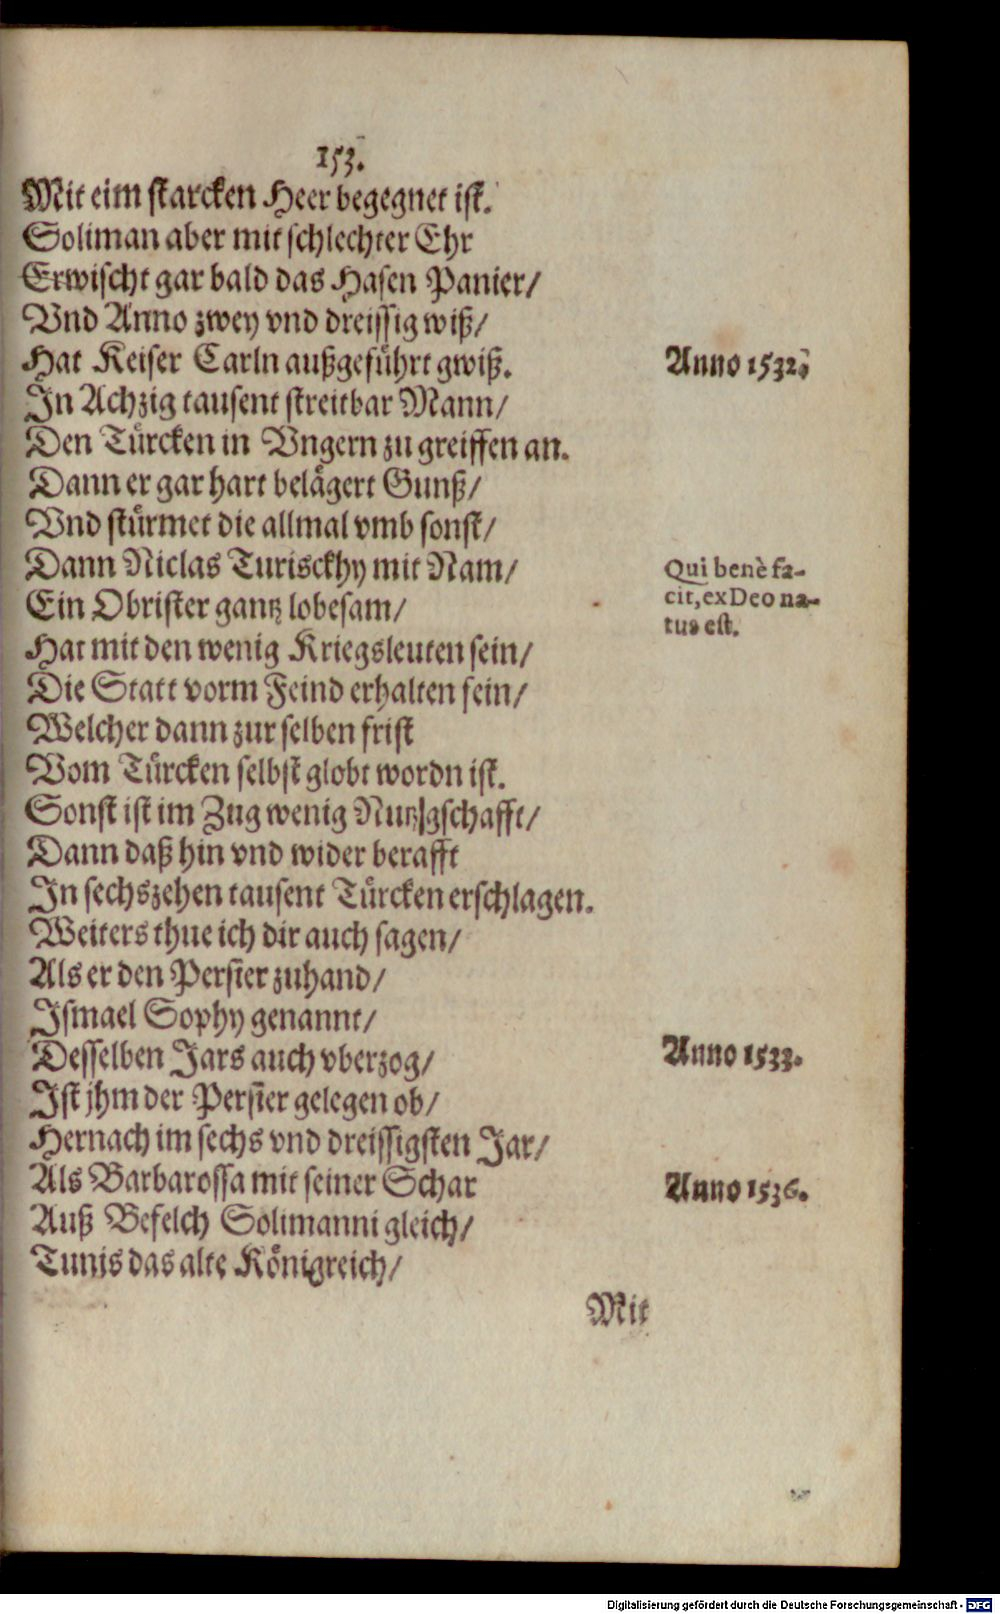 153.
Mit eim starcken Heer begegnet ist.
Soliman aber mit schlechter Ehr
Erwischt gar bald das Hasen Panier/
Vnd Anno zwey vnd dreissig wiß/
Hat Keiser Carln außgeführt gwiß.
Anno 1532.
In Achzig tausent streitbar Mann/
Den Türcken in Vngern zu greiffen an.
Dann er gar hart belägert Gunß/
Vnd stürmet die allmal vmb sonst/
Dann Niclas Turisckhy mit Nam/
Qui benè fa-
Ein Obrister gantz lobesam/
cit, ex Deo na-
tus est.
Hat mit den wenig Kriegsleuten sein/
Die Statt vorm Feind erhalten fein/
Welcher dann zur selben frist
Vom Türcken selbst globt wordn ist.
Sonst ist im Zug wenig Nutz gschafft/
Dann daß hin vnd wider berafft
In sechszehen tausent Türcken erschlagen.
Weiters thue ich dir auch sagen/
Als er den Persier zuhand/
Ismael Sophy genannt/
Desselben Jars auch vberzog/
Anno 1533.
Ist jhm der Persier gelegen ob/
Hernach im sechs vnd dreissigsten Jar/
Als Barbarossa mit seiner Schar
Anno 1536.
Auß Befelch Solimanni gleich/
Tunis das alte Königreich/
Mit
Digitalisierung gefördert durch die Deutsche Forschungsgemeinschaft - DFG